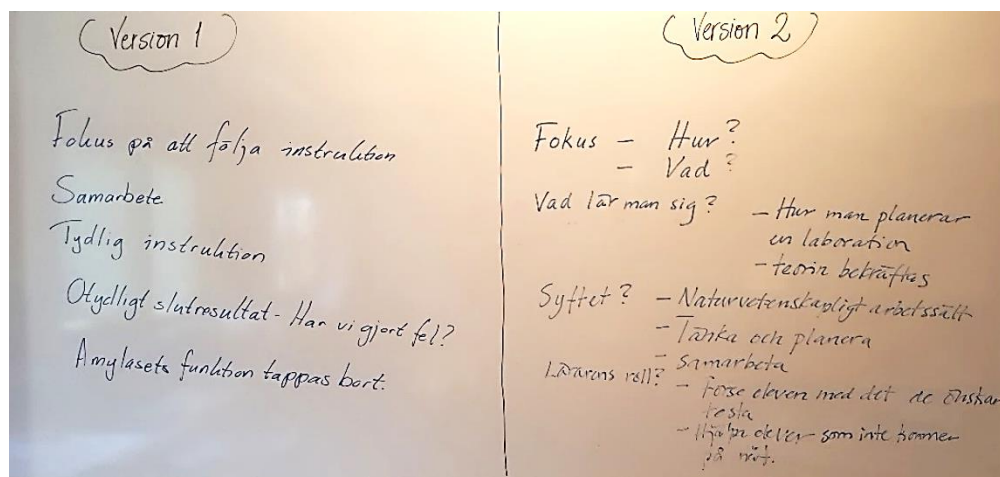 Version 1
Fokus på att följa instruktion
Samarbete
Tydlig instruktion
Otydligt slutresultat - Har vi gjort fel?
Amylasets funktion tappas bort.
Version 2
Fokus - Hur?
- Vad?
Vad lär man sig? - Hur man planerar
en laboration
- teorin bekräftas
Syftet? - Naturvetenskapligt arbetssätt
- Tänka och planera
- Samarbeta
Lärarens roll? - Förse eleven med det de önskar
testa
- Hjälpa elever som inte kommer
på nåt.